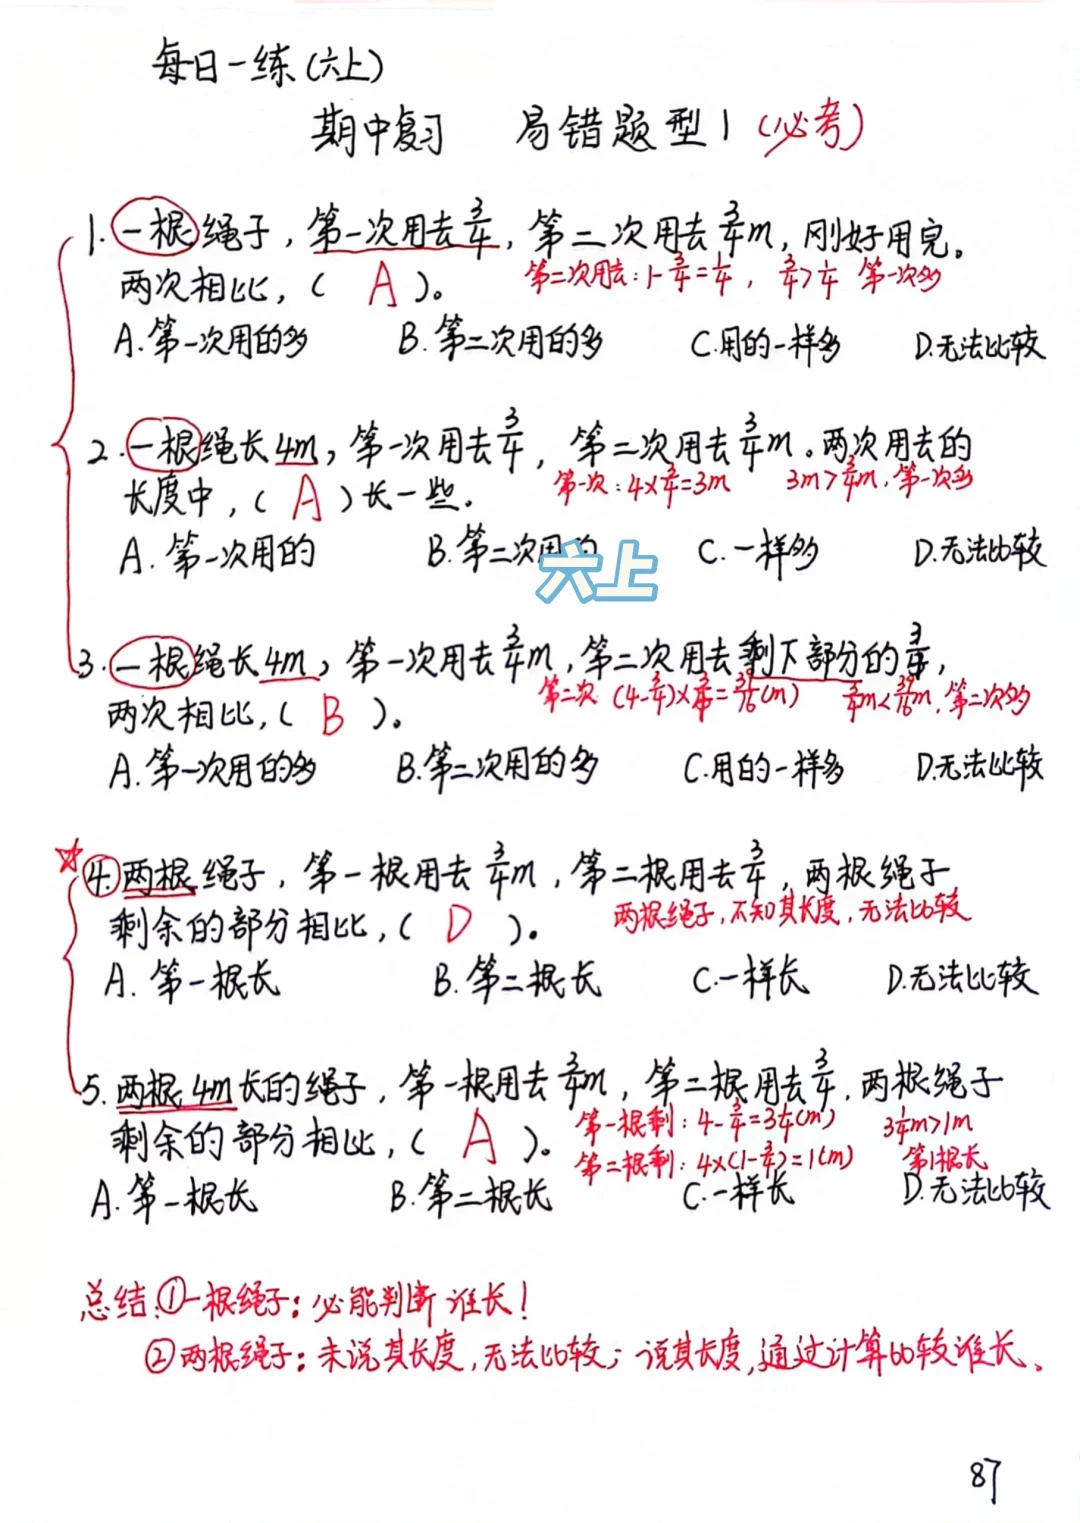 每日一练(六上)
期中复习 易错题型1(必考)
1. 一根绳子，第一次用去3/4，第二次用去3/4m，刚好用完。
第二次用去:1-3/4=1/4，3/4>1/4 第一次多
两次相比，( A )。
A.第一次用的多 B.第二次用的多 C.用的一样多 D.无法比较
2.一根绳长4m，第一次用去3/4，第二次用去3/4m。两次用去的
第一次:4×3/4=3m 3m>3/4m，第一次多
长度中，( A )长一些.
A.第一次用的 B.第二次用的 C.一样多 D.无法比较
六上
3.一根绳长4m，第一次用去3/4m，第二次用去剩下部分的3/4，
第二次 (4-3/4)×3/4=39/16(m) 3/4m<39/16m，第二次多
两次相比，( B )。
A.第一次用的多 B.第二次用的多 C.用的一样多 D.无法比较
☆④.两根绳子，第一根用去3/4m，第二根用去3/4，两根绳子
两根绳子，不知其长度，无法比较
剩余的部分相比，( D )。
A.第一根长 B.第二根长 C.一样长 D.无法比较
5.两根4m长的绳子，第一根用去3/4m，第二根用去3/4，两根绳子
第一根剩:4-3/4=3 1/4(m) 3 1/4m>1m
剩余的部分相比，( A )。
第二根剩:4×(1-3/4)=1(m) 第1根长
A.第一根长 B.第二根长 C.一样长 D.无法比较
总结:①一根绳子:必能判断谁长!
②两根绳子:未说其长度，无法比较;说其长度，通过计算比较谁长.
87